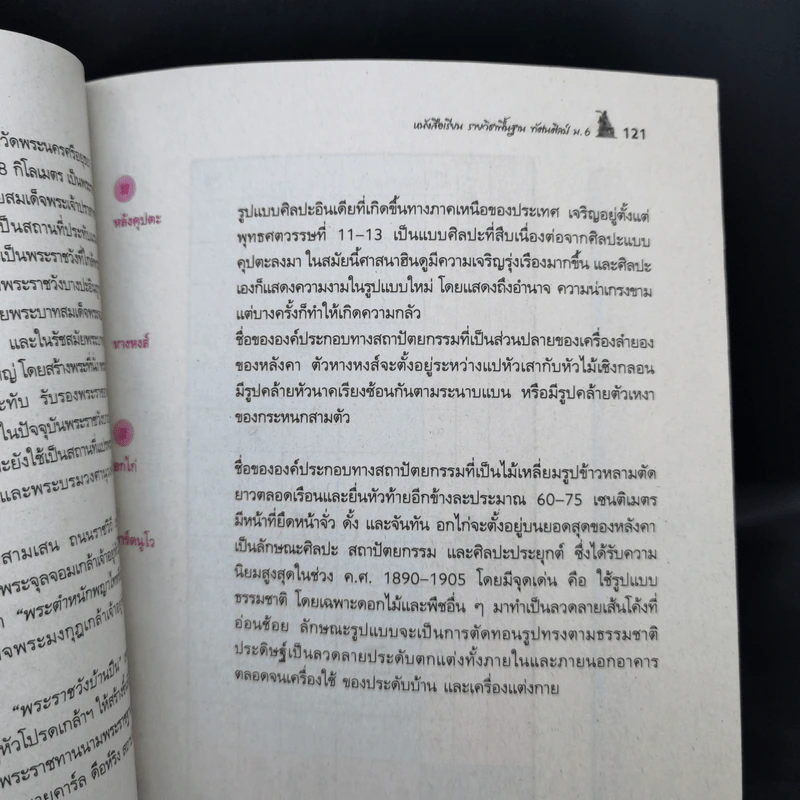 วัดพระนครศรีอยุธ
8 กิโลเมตร เป็นพระรา
ยสมเด็จพระเจ้าปราสา
เป็นสถานที่ประทับแ
เป็นพระราชวังที่ใกล้
พระราชวังบางปะอิน
ยพระบาทสมเด็จพระ
และในรัชสมัยพระบา
ญ่ โดยสร้างพระที่นั่ง
ะทับ รับรองพระราช
ในปัจจุบันพระราชวัง
ะยังใช้เป็นสถานที่แปรพระ
และพระบรมวงศานุวง
สามเสน ถนนราชวิถี
พระจุลจอมเกล้าเจ้าอยู่หัว
า "พระตำหนักพญาไท
จพระมงกุฎเกล้าเจ้าอยู่
"พระราชวังบ้านปืน"
หัวโปรดเกล้าฯ ให้สร้างขึ้น
พระราชทานนามพระราช
นายคาร์ล ดือห์ริง สถา
หนังสือเรียน รายวิชาพื้นฐาน ทัศนศิลป์ ม.6 121
ห
หลังคุปตะ
รูปแบบศิลปะอินเดียที่เกิดขึ้นทางภาคเหนือของประเทศ เจริญอยู่ตั้งแต่
พุทธศตวรรษที่ 11–13 เป็นแบบศิลปะที่สืบเนื่องต่อจากศิลปะแบบ
คุปตะลงมา ในสมัยนี้ศาสนาฮินดูมีความเจริญรุ่งเรืองมากขึ้น และศิลปะ
เองก็แสดงความงามในรูปแบบใหม่ โดยแสดงถึงอำนาจ ความน่าเกรงขาม
แต่บางครั้งก็ทำให้เกิดความกลัว
หางหงส์
ชื่อขององค์ประกอบทางสถาปัตยกรรมที่เป็นส่วนปลายของเครื่องลำยอง
ของหลังคา ตัวหางหงส์จะตั้งอยู่ระหว่างแปหัวเสากับหัวไม้เชิงกลอน
มีรูปคล้ายหัวนาคเรียงซ้อนกันตามระนาบแบน หรือมีรูปคล้ายตัวเหงา
ของกระหนกสามตัว
อ
อกไก่
ชื่อขององค์ประกอบทางสถาปัตยกรรมที่เป็นไม้เหลี่ยมรูปข้าวหลามตัด
ยาวตลอดเรือนและยื่นหัวท้ายอีกข้างละประมาณ 60–75 เซนติเมตร
มีหน้าที่ยึดหน้าจั่ว ดั้ง และจันทัน อกไก่จะตั้งอยู่บนยอดสุดของหลังคา
าร์ตนูโว
เป็นลักษณะศิลปะ สถาปัตยกรรม และศิลปะประยุกต์ ซึ่งได้รับความ
นิยมสูงสุดในช่วง ค.ศ. 1890–1905 โดยมีจุดเด่น คือ ใช้รูปแบบ
ธรรมชาติ โดยเฉพาะดอกไม้และพืชอื่น ๆ มาทำเป็นลวดลายเส้นโค้งที่
อ่อนช้อย ลักษณะรูปแบบจะเป็นการตัดทอนรูปทรงตามธรรมชาติ
ประดิษฐ์เป็นลวดลายประดับตกแต่งทั้งภายในและภายนอกอาคาร
ตลอดจนเครื่องใช้ ของประดับบ้าน และเครื่องแต่งกาย